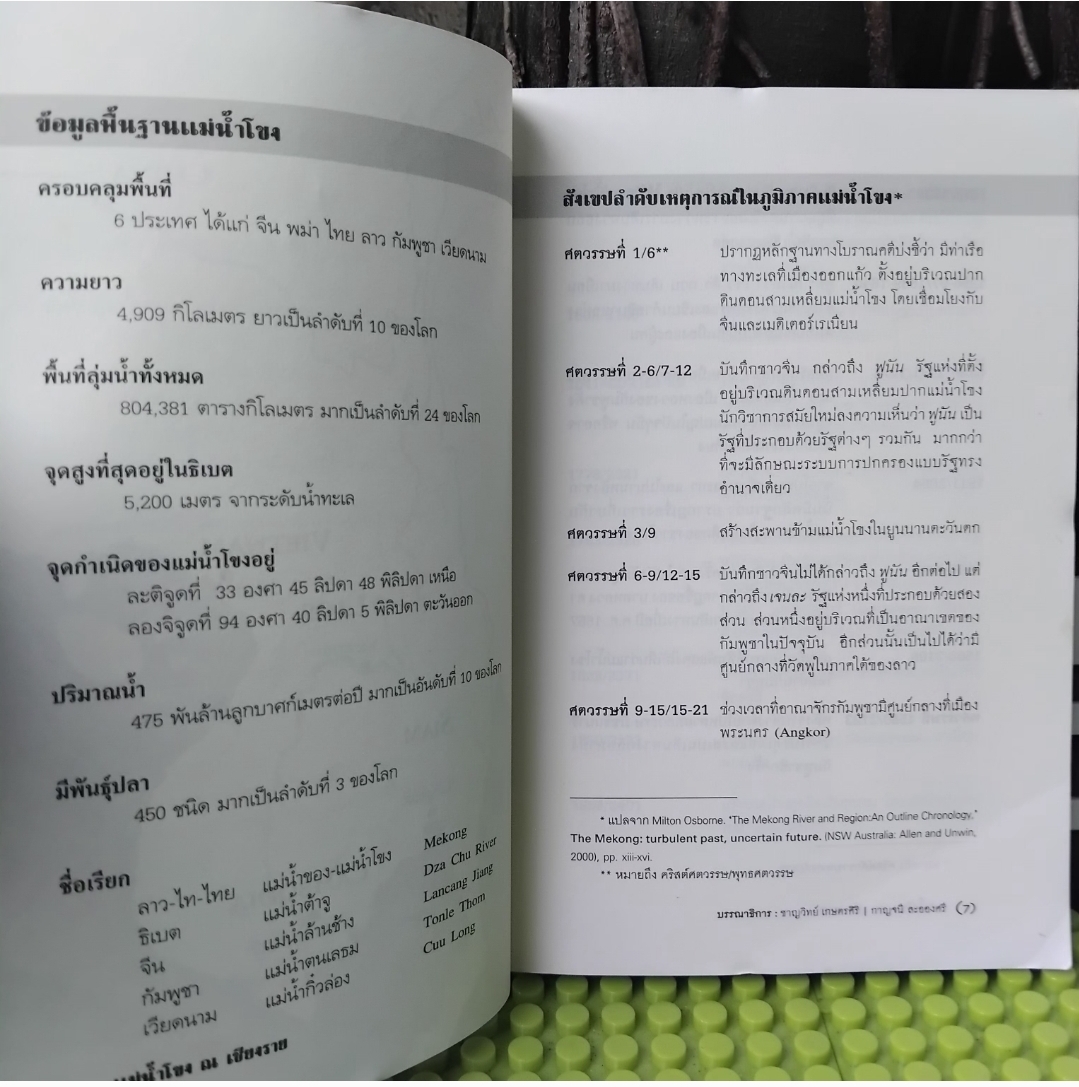 ข้อมูลพื้นฐานแม่น้ำโขง
ครอบคลุมพื้นที่
6 ประเทศ ได้แก่ จีน พม่า ไทย ลาว กัมพูชา เวียดนาม
ความยาว
4,909 กิโลเมตร ยาวเป็นลำดับที่ 10 ของโลก
พื้นที่ลุ่มน้ำทั้งหมด
804,381 ตารางกิโลเมตร มากเป็นลำดับที่ 24 ของโลก
จุดสูงที่สุดอยู่ในธิเบต
5,200 เมตร จากระดับน้ำทะเล
จุดกำเนิดของแม่น้ำโขงอยู่
ละติจูดที่ 33 องศา 45 ลิปดา 48 พิลิปดา เหนือ
ลองจิจูดที่ 94 องศา 40 ลิปดา 5 พิลิปดา ตะวันออก
ปริมาณน้ำ
475 พันล้านลูกบาศก์เมตรต่อปี มากเป็นอันดับที่ 10 ของโลก
มีพันธุ์ปลา
450 ชนิด มากเป็นลำดับที่ 3 ของโลก
ชื่อเรียก
ลาว-ไท-ไทย แม่น้ำของ-แม่น้ำโขง Mekong
ธิเบต แม่น้ำต้าจู Dza Chu River
จีน แม่น้ำล้านช้าง Lancang Jiang
กัมพูชา แม่น้ำตนเลธม Tonle Thom
เวียดนาม แม่น้ำกิ๋วล่อง Cuu Long
แม่น้ำโขง ณ เชียงราย
สังเขปลำดับเหตุการณ์ในภูมิภาคแม่น้ำโขง*
ศตวรรษที่ 1/6** ปรากฏหลักฐานทางโบราณคดีบ่งชี้ว่า มีท่าเรือ
ทางทะเลที่เมืองออกแก้ว ตั้งอยู่บริเวณปาก
ดินดอนสามเหลี่ยมแม่น้ำโขง โดยเชื่อมโยงกับ
จีนและเมดิเตอร์เรเนียน
ศตวรรษที่ 2-6/7-12 บันทึกชาวจีน กล่าวถึง ฟูนัน รัฐแห่งที่ตั้ง
อยู่บริเวณดินดอนสามเหลี่ยมปากแม่น้ำโขง
นักวิชาการสมัยใหม่ลงความเห็นว่า ฟูนัน เป็น
รัฐที่ประกอบด้วยรัฐต่างๆ รวมกัน มากกว่า
ที่จะมีลักษณะระบบการปกครองแบบรัฐทรง
อำนาจเดี่ยว
ศตวรรษที่ 3/9 สร้างสะพานข้ามแม่น้ำโขงในยูนนานตะวันตก
ศตวรรษที่ 6-9/12-15 บันทึกชาวจีนไม่ได้กล่าวถึง ฟูนัน อีกต่อไป แต่
กล่าวถึง เจนละ รัฐแห่งหนึ่งที่ประกอบด้วยสอง
ส่วน ส่วนหนึ่งอยู่บริเวณที่เป็นอาณาเขตของ
กัมพูชาในปัจจุบัน อีกส่วนนั้นเป็นไปได้ว่ามี
ศูนย์กลางที่วัดพูในภาคใต้ของลาว
ศตวรรษที่ 9-15/15-21 ช่วงเวลาที่อาณาจักรกัมพูชามีศูนย์กลางที่เมือง
พระนคร (Angkor)
* แปลจาก Milton Osborne. "The Mekong River and Region:An Outline Chronology."
The Mekong: turbulent past, uncertain future. (NSW Australia: Allen and Unwin,
2000), pp. xiii-xvi.
** หมายถึง คริสต์ศตวรรษ/พุทธศตวรรษ
บรรณาธิการ : ชาญวิทย์ เกษตรศิริ | กาญจนี ละอองศรี (7)